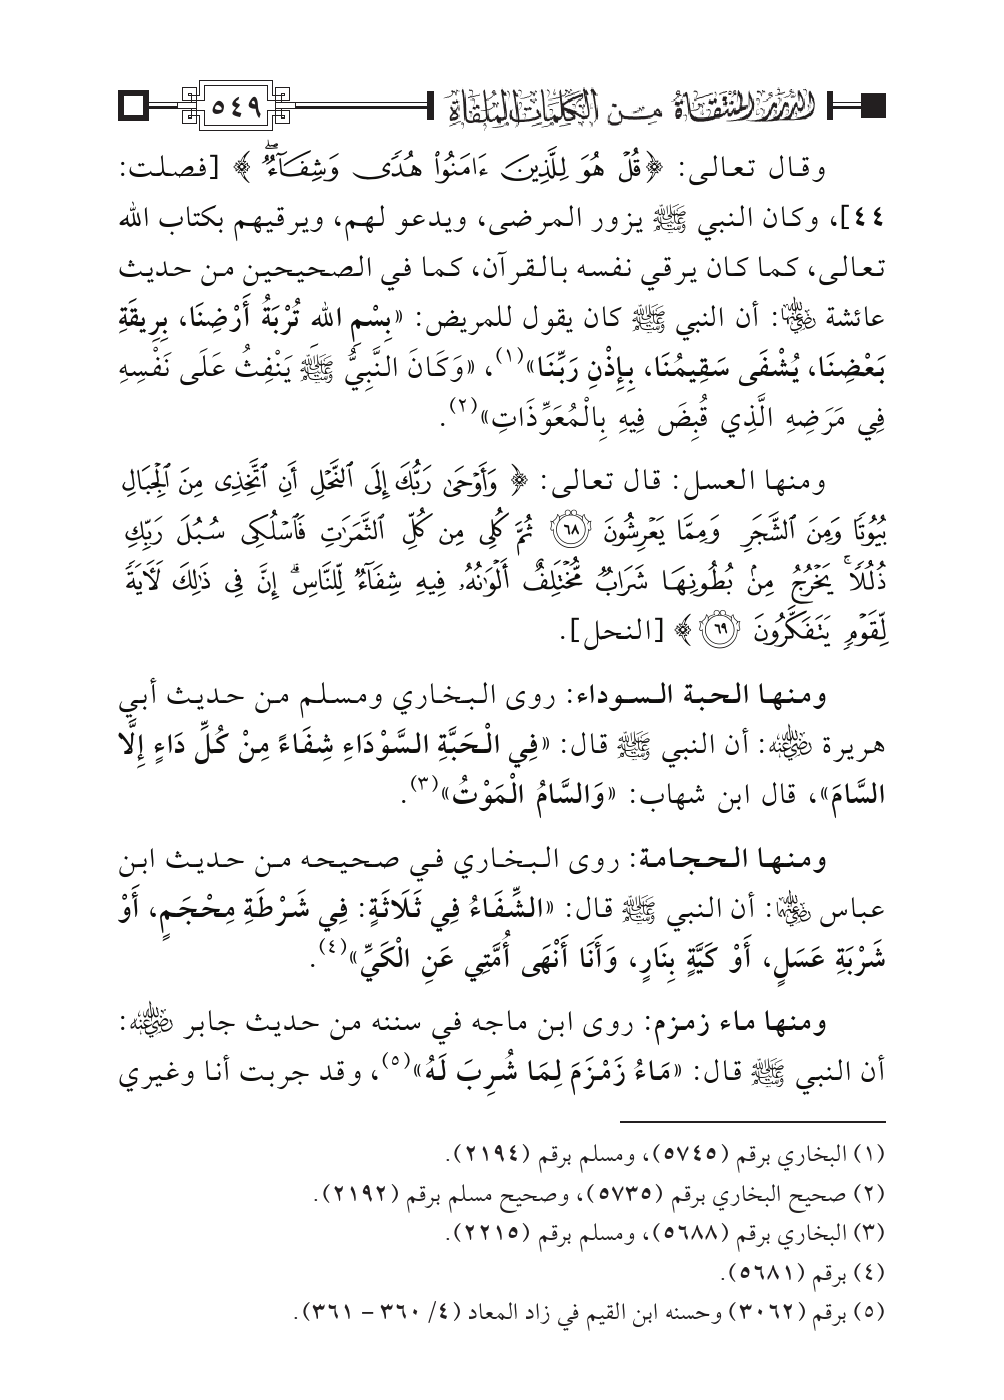 الدرر المنتقاة من الكلمات الملقاة
٥٤٩
وقال تعالى: ﴿ قُلْ هُوَ لِلَّذِينَ ءَامَنُوا۟ هُدًى وَشِفَآءٌ ﴾ [فصلت:
٤٤]، وكان النبي ﷺ يزور المرضى، ويدعو لهم، ويرقيهم بكتاب الله
تعالى، كما كان يرقي نفسه بالقرآن، كما في الصحيحين من حديث
عائشة رضي الله عنها: أن النبي ﷺ كان يقول للمريض: «بِسْمِ الله تُرْبَةُ أَرْضِنَا، بِرِيقَةِ
بَعْضِنَا، يُشْفَى سَقِيمُنَا، بِإِذْنِ رَبِّنَا»(١)، «وَكَانَ النَّبِيُّ ﷺ يَنْفِثُ عَلَى نَفْسِهِ
فِي مَرَضِهِ الَّذِي قُبِضَ فِيهِ بِالْمُعَوِّذَاتِ»(٢).
ومنها العسل: قال تعالى: ﴿ وَأَوْحَىٰ رَبُّكَ إِلَى ٱلنَّحْلِ أَنِ ٱتَّخِذِى مِنَ ٱلْجِبَالِ
بُيُوتًا وَمِنَ ٱلشَّجَرِ وَمِمَّا يَعْرِشُونَ ٦٨ ثُمَّ كُلِى مِن كُلِّ ٱلثَّمَرَٰتِ فَٱسْلُكِى سُبُلَ رَبِّكِ
ذُلُلًا ۚ يَخْرُجُ مِنۢ بُطُونِهَا شَرَابٌ مُّخْتَلِفٌ أَلْوَٰنُهُۥ فِيهِ شِفَآءٌ لِّلنَّاسِ ۗ إِنَّ فِى ذَٰلِكَ لَـَٔايَةً
لِّقَوْمٍ يَتَفَكَّرُونَ ٦٩ ﴾ [النحل].
ومنها الحبة السوداء: روى البخاري ومسلم من حديث أبي
هريرة رضي الله عنه: أن النبي ﷺ قال: «فِي الْحَبَّةِ السَّوْدَاءِ شِفَاءً مِنْ كُلِّ دَاءٍ إِلَّا
السَّامَ»، قال ابن شهاب: «وَالسَّامُ الْمَوْتُ»(٣).
ومنها الحجامة: روى البخاري في صحيحه من حديث ابن
عباس رضي الله عنهما: أن النبي ﷺ قال: «الشِّفَاءُ فِي ثَلَاثَةٍ: فِي شَرْطَةِ مِحْجَمٍ، أَوْ
شَرْبَةِ عَسَلٍ، أَوْ كَيَّةٍ بِنَارٍ، وَأَنَا أَنْهَى أُمَّتِي عَنِ الْكَيِّ»(٤).
ومنها ماء زمزم: روى ابن ماجه في سننه من حديث جابر رضي الله عنه:
أن النبي ﷺ قال: «مَاءُ زَمْزَمَ لِمَا شُرِبَ لَهُ»(٥)، وقد جربت أنا وغيري
(١) البخاري برقم (٥٧٤٥)، ومسلم برقم (٢١٩٤).
(٢) صحيح البخاري برقم (٥٧٣٥)، وصحيح مسلم برقم (٢١٩٢).
(٣) البخاري برقم (٥٦٨٨)، ومسلم برقم (٢٢١٥).
(٤) برقم (٥٦٨١).
(٥) برقم (٣٠٦٢) وحسنه ابن القيم في زاد المعاد (٤/ ٣٦٠ – ٣٦١).